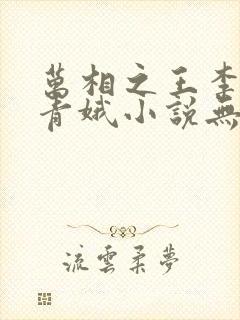 萬相之王李
青娥小說無
流雲柔夢